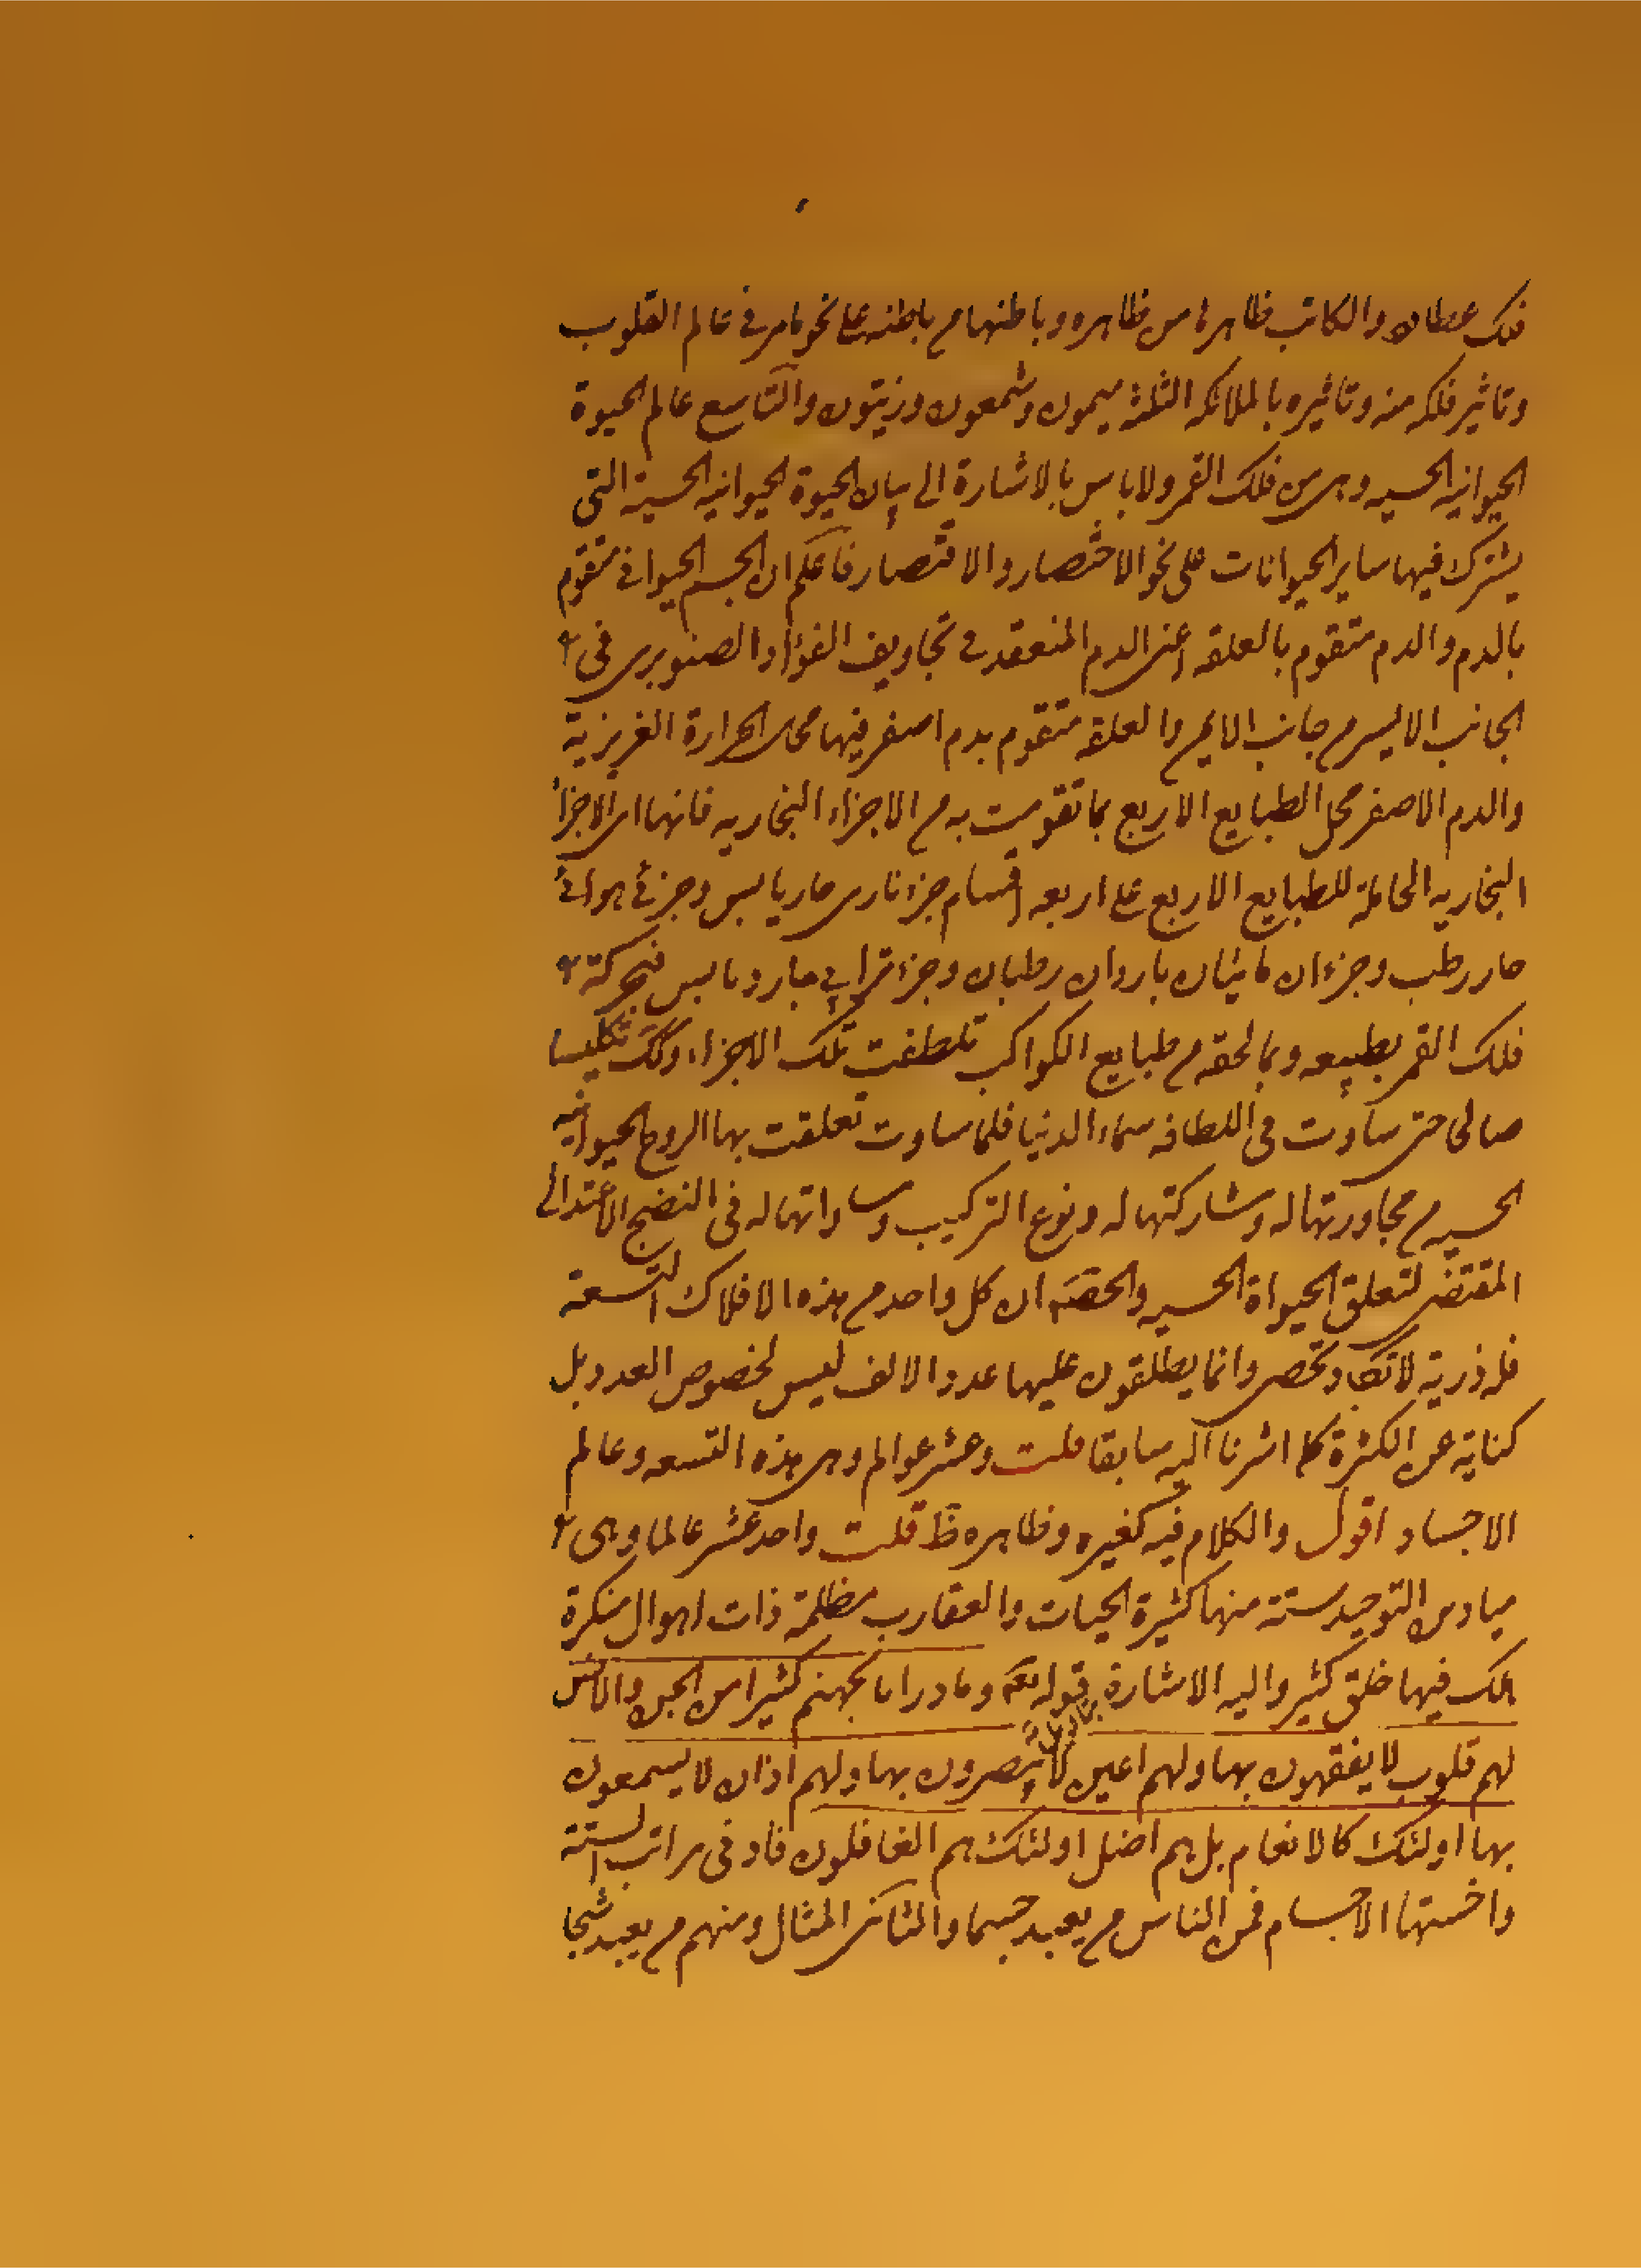 فلك عطارد والكاتب ظاهرها من ظاهره وباطنها من باطنه على نحو ما مر في عالم القلوب
وتاثير فلكه منه وتاثيره بالملائكه الثلثة سيمون وشمعون وزيتون والتاسع عالم الحيوة
الحيوانيه الحسيه وهى من فلك القمر ولا باس بالاشارة الى بيان الحيوة الحيوانيه الحسية التى
يشترك فيها ساير الحيوانات على نحو الاختصار والاقتصار فاعلم ان الجسم الحيوانى متقوم
بالدم والدم متقوم بالعلقه اعنى الدم المنعقد فى تجاويف الفؤاد الصنوبرى فى
الجانب الايسر من جانب الايمن والعلقه متقوم بدم اصفر فيها محل الحرارة الغريزية
والدم الاصفر محل الطبايع الاربع بما تقومت به من الاجزاء البخاريه فانها اى الاجزاء
البخاريه الحاملة للطبايع الاربع على اربعه اقسام جزء نارى حار يابس وجزئ هوائ
حار رطب وجزءان مائيان باردان رطبان وجزء ترابي بارد يابس فبحركة
فلك القمر بطبيعه وبما لحقه من طبايع الكواكب تلطفت تلك الاجزاء وتكلست تكليسا
صالى حتى ساوت فى اللطافه سماء الدنيا فلما ساوت تعلقت بها الروح الحيوانيه
الحسيه من مجاورتها له ومشاركتها له ونوع التركيب ومساواتها له فى النضج الاعتدالى
المقتضى لتعلق الحيواة الحسيه والحقه ان كل واحد من هذه الافلاك التسعة
فله ذرية لا تكاد تحصى وانما يطلقون عليها عدد الالف ليس لخصوص العدد بل
كناية عن الكثرة كما اشرنا اليه سابقا قلت وعشر عوالم وهى هذه التسعه وعالم
الاجساد اقول والكلام فيه كغيره وظاهره ظ قلت واحد عشر عالما وهى
ميادين التوحيد ستة منها كثيرة الحيات والعقارب مظلمة ذات اهوال منكرة
هلك فيها خلق كثير واليه الاشارة بقوله تعم ولقد ذرانا لجهنم كثيرا من الجن والانس
لهم قلوب لا يفقهون بها ولهم اعين لا يبصرون بها ولهم اذان لا يسمعون
بها اولئك كالانعام بل هم اضل اولئك هم الغافلون فادنى مراتب الستة
واخستها الاجسام فمن الناس من يعبد جسما والثانى المثال ومنهم من يعبد شبحا